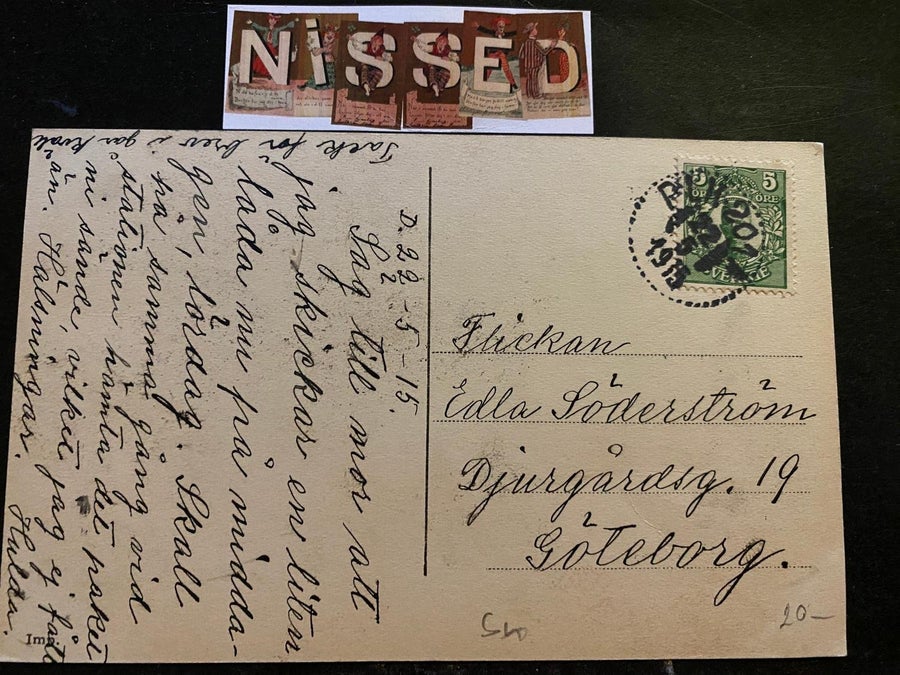 NiSSED
Tack för brev i går kväll
D. 22-5-15.
Säg till mor att
jag skickar en liten
låda nu på midda-
gen, lördag. Skall
på samma gång vid
stationen hämta det paket
ni sände, vilket jag ej fått
än. Hälsningar. Hulda.
Imp.
5 5
ÖRE
SVERIGE
PLK 201
22 5
1915
Flickan
Edla Söderström
Djurgårdsg. 19
Göteborg.
20-